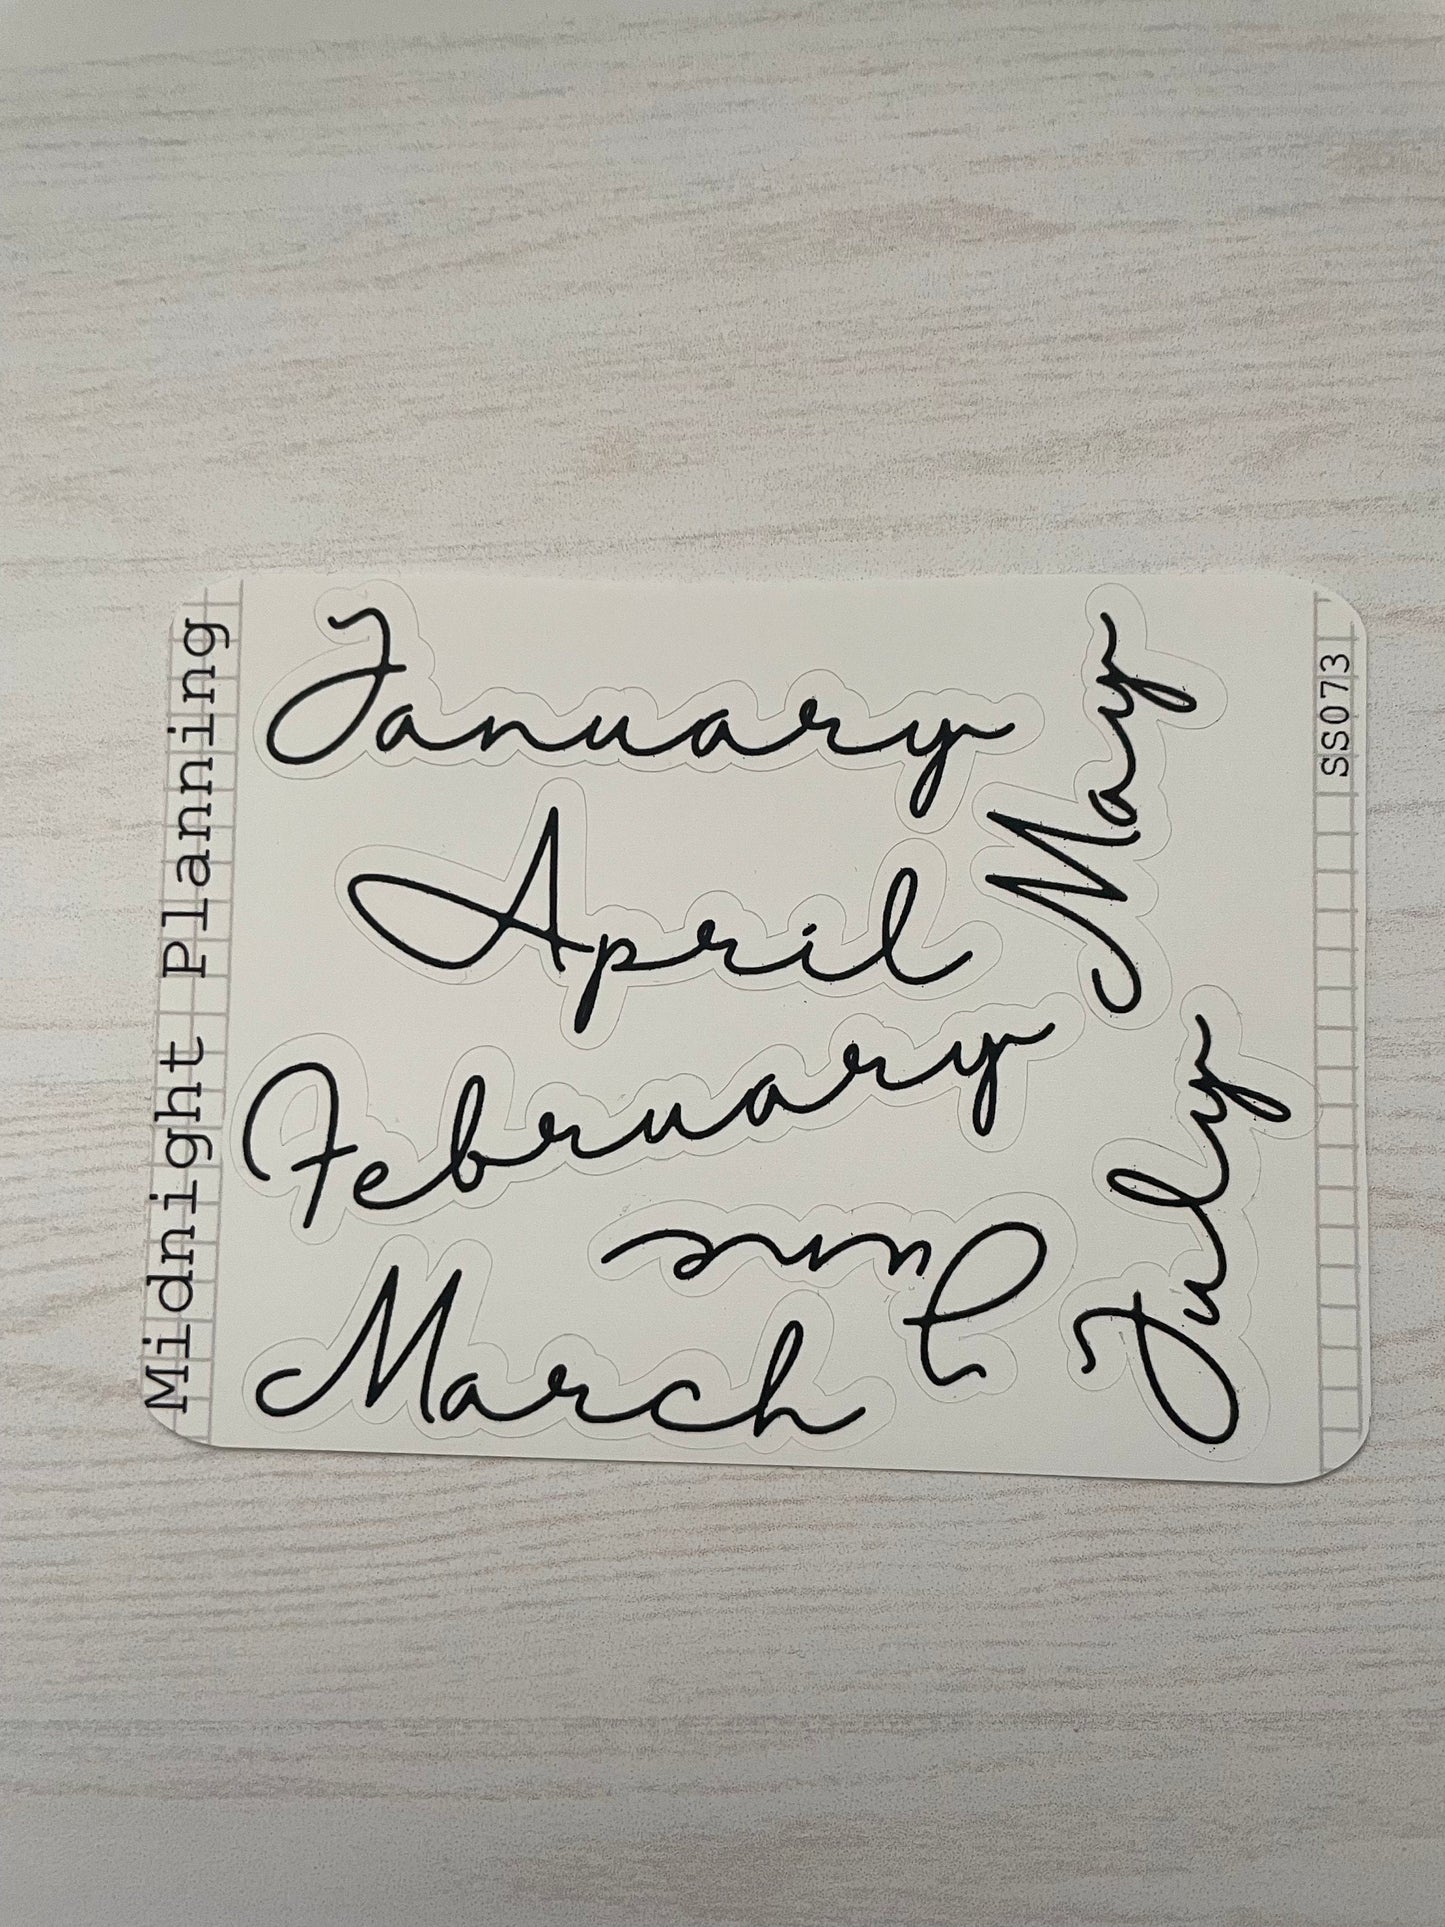 Midnight Planning
January
May
SS073
April
February
July
June
March